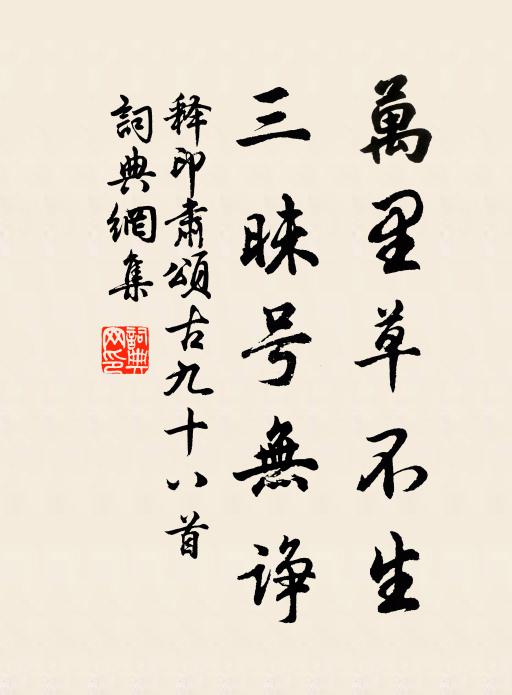 萬里草不生
三昧号無诤
释印肃頌古九十八首
詞典網集
詞典網印